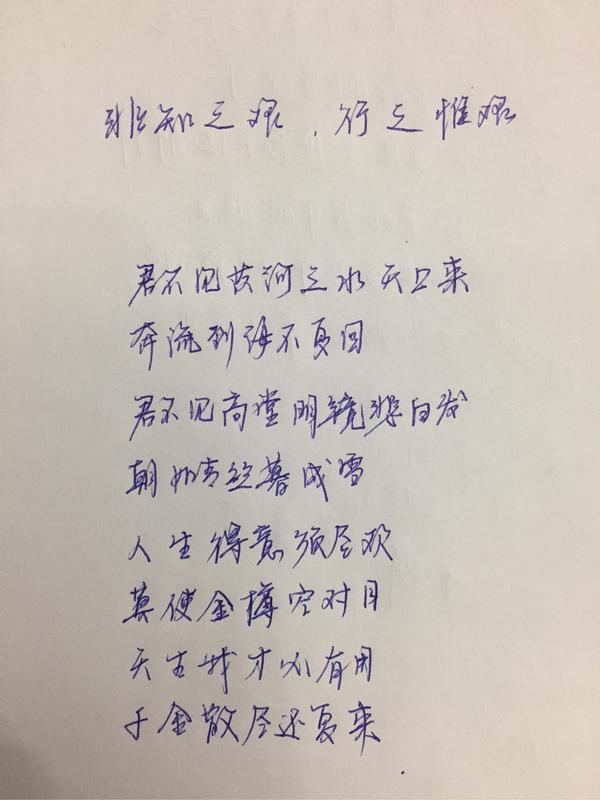 非知之艰，行之惟艰
君不见黄河之水天上来
奔流到海不复回
君不见高堂明镜悲白发
朝如青丝暮成雪
人生得意须尽欢
莫使金樽空对月
天生我才必有用
千金散尽还复来